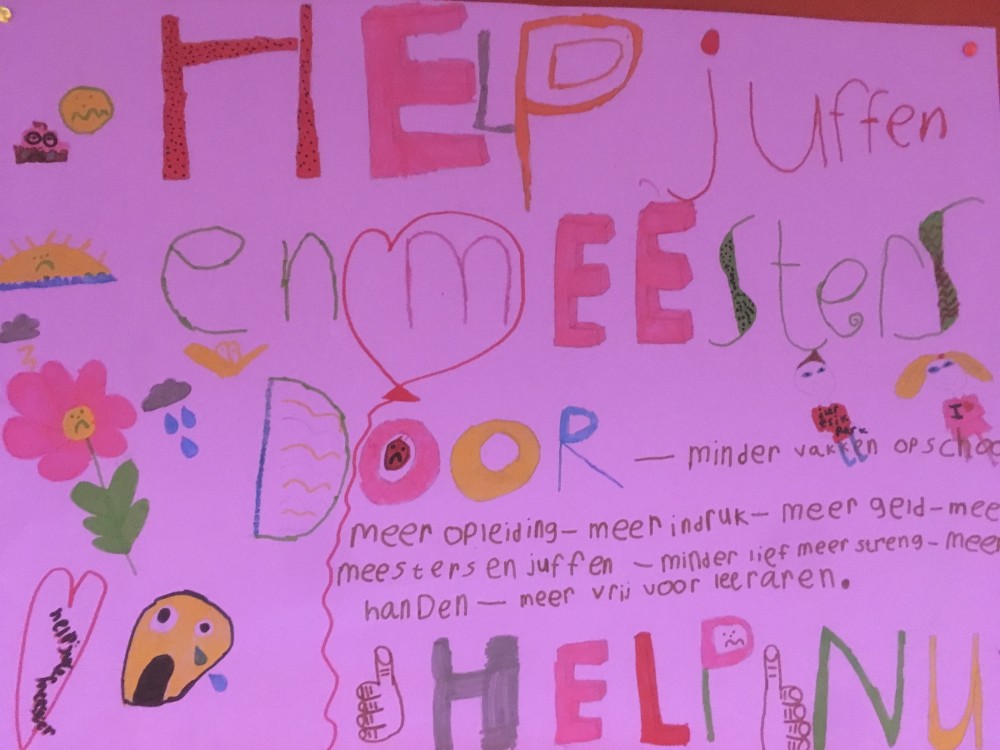 HELP juffen
en mEEsters
DOOR
— minder vakken op schoo
meer opleiding – meer indruk – meer geld – mee
meesters en juffen – minder lief meer streng – meer
handen — meer vrij voor leeraren.
HELP NU
I